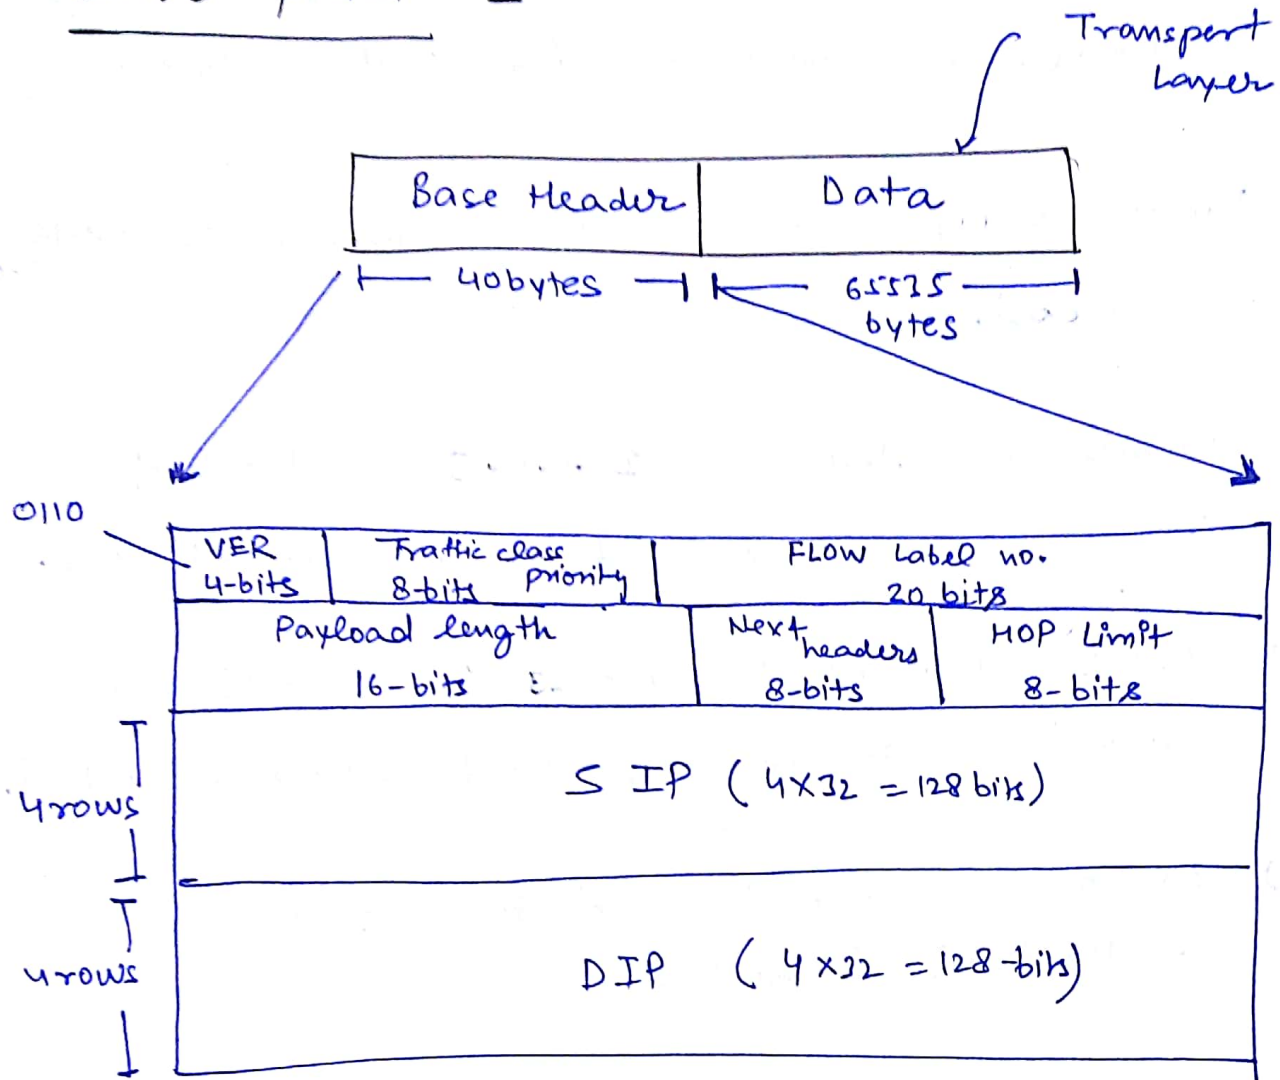 Transport
Layer
Base Header
Data
40bytes
65535
bytes
0110
VER
4-bits
Traffic class
8-bits priority
FLOW Label no.
20 bits
Payload length
16-bits
Next
headers
8-bits
HOP Limit
8-bits
4rows
S IP (4X32 = 128 bits)
4rows
DIP (4x32 = 128-bits)